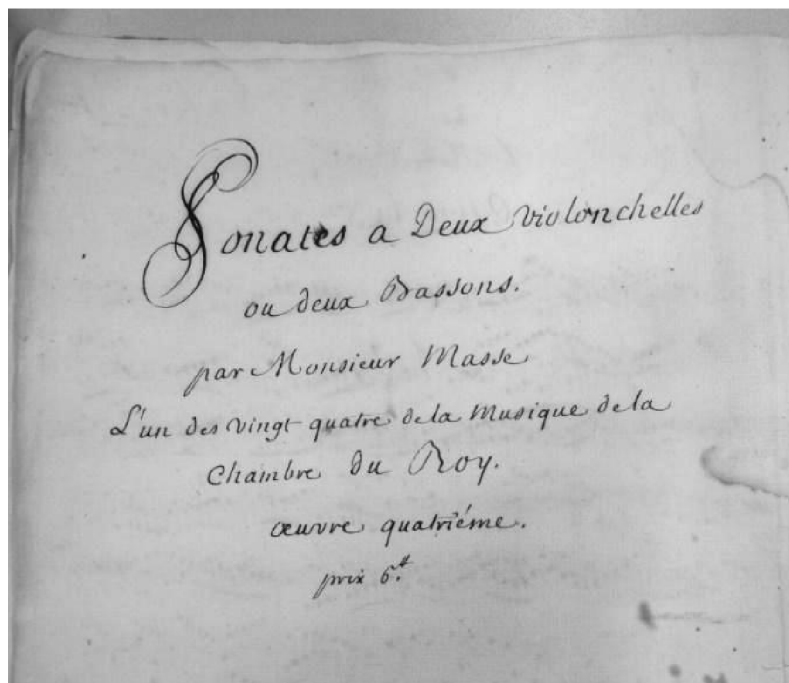 Sonates a Deux violonchelles
ou deux Bassons.
par Monsieur Masse
L'un des vingt quatre de la Musique de la
Chambre du Roy.
œuvre quatriéme.
prix 6.₶